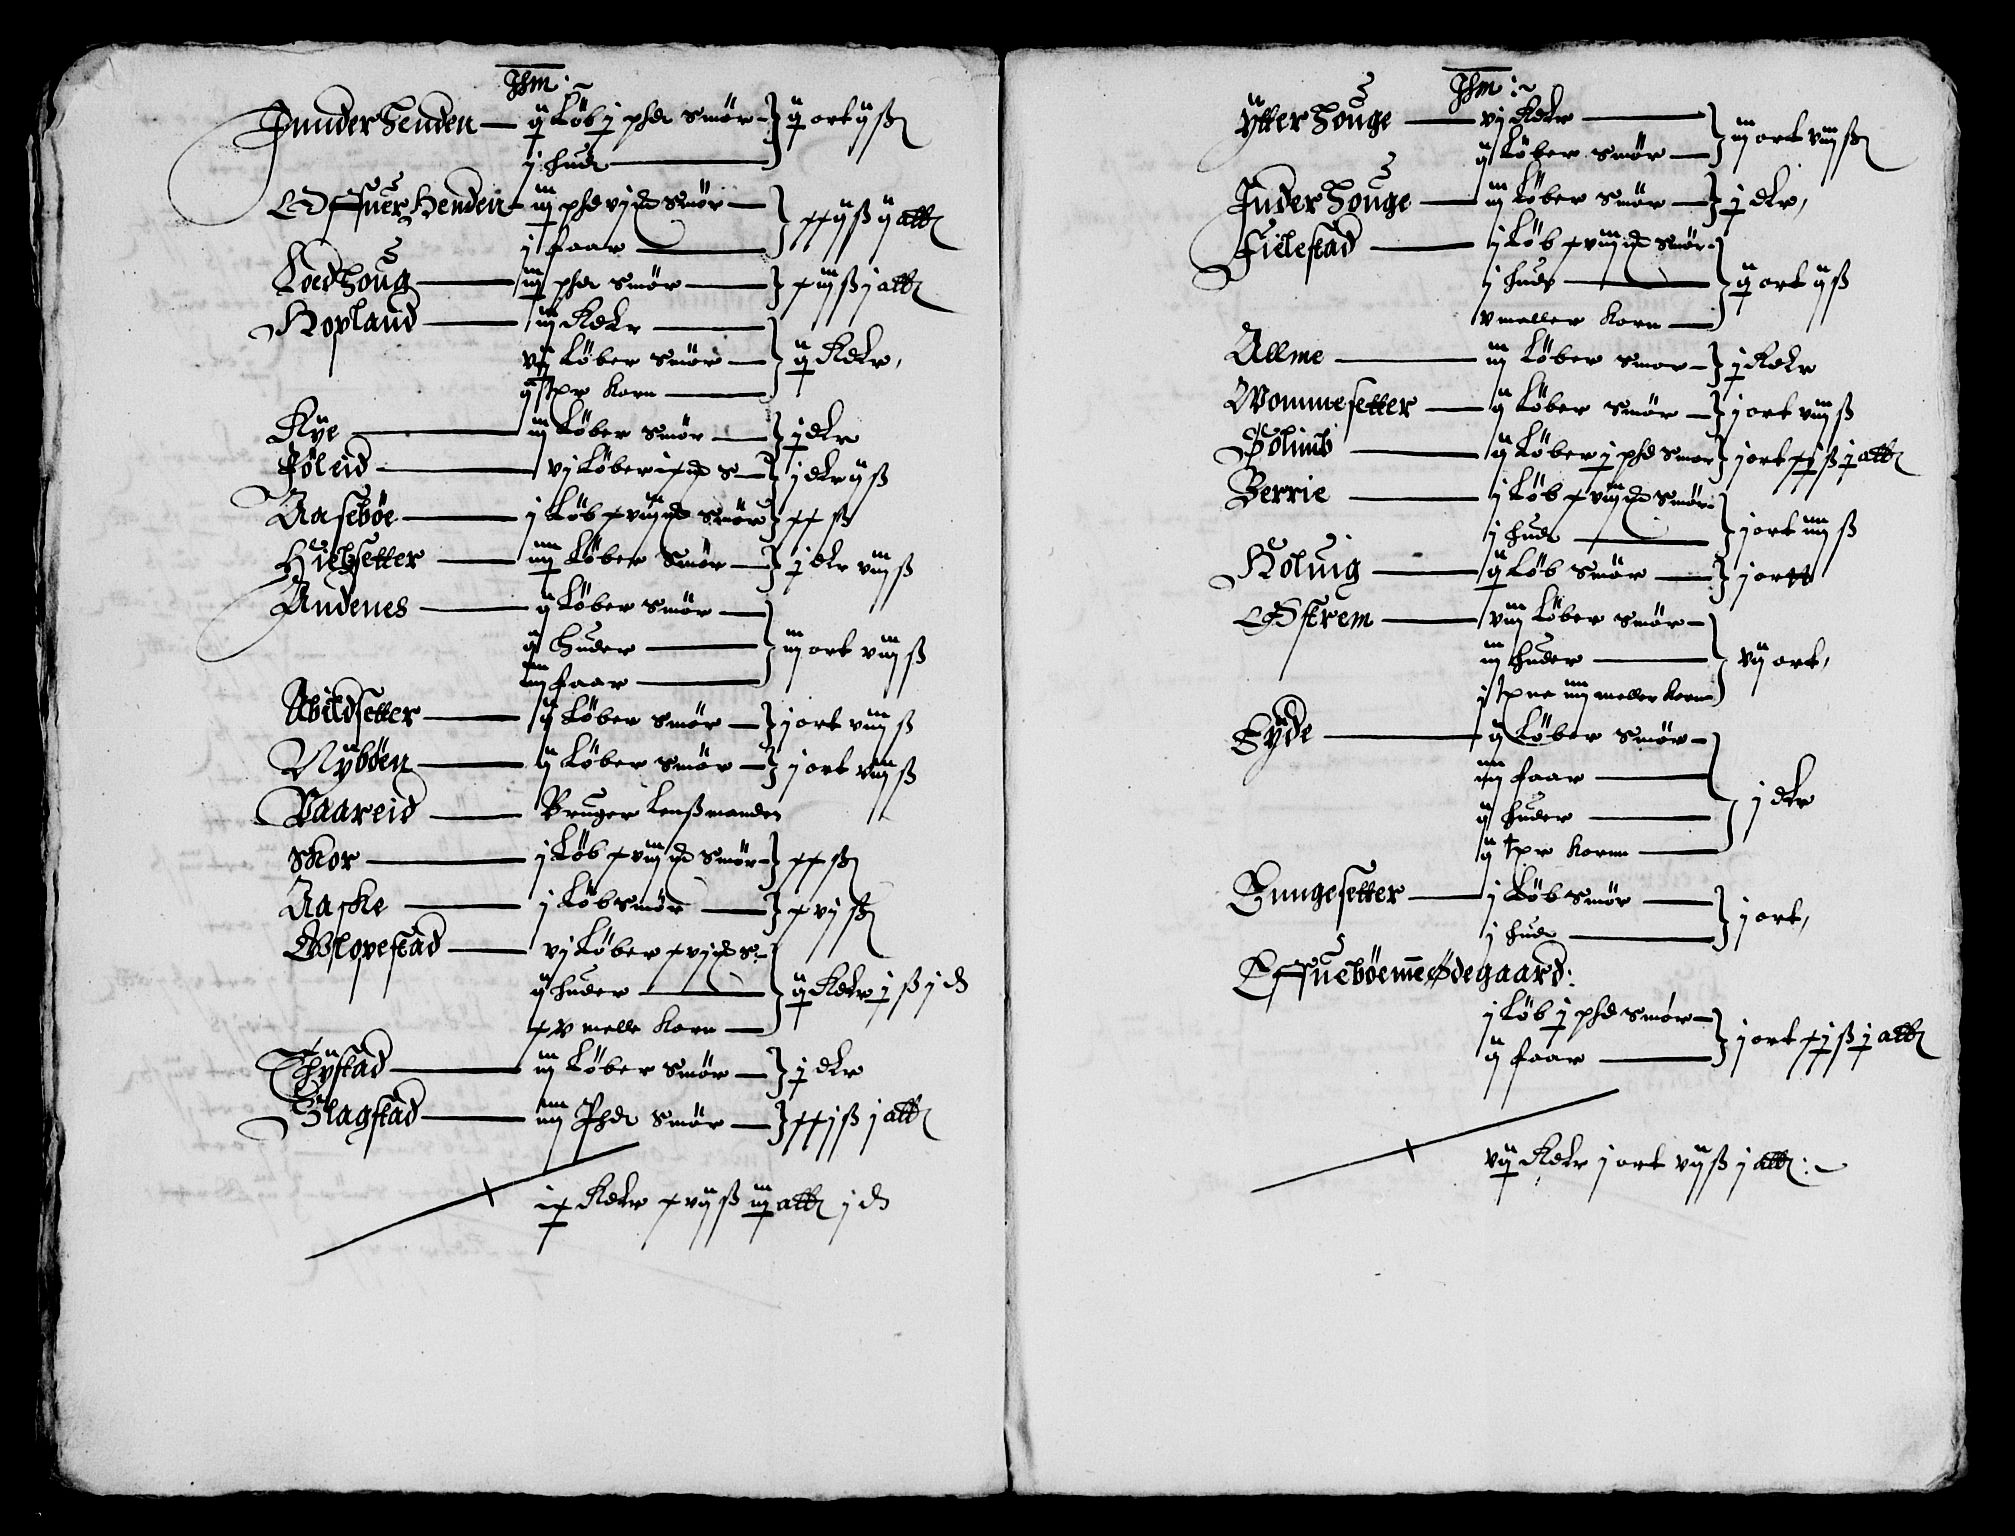 Jhm :~
Junder Henden — ij Løb j phd Smør — } ij ort ij ß
j hud —
Offuer Henden — iij phd vj pd Smør — } xxij ß ij alb
j faar —
Loedhoug — iij phd Smør — } xiij ß j alb
Hopland — iij Rdlr — } ij Rdlr,
vij Løber Smør —
ij tpr Korn —
Rye — iij Løber Smør — } j dlr
Jøleid — vj Løber ix pd S — } j dlr ij ß
Aasebøe — j Løb xviij pd Smør } xx ß
Hielsetter — iiij Løber Smør — } j dlr viij ß
Andenes — ij Løber Smør — } iij ort viij ß
ij Huder —
iiij faar —
Abildsetter — ij Løber Smør — } j ort viij ß
Nybøen — ij Løber Smør — } j ort viij ß
Vaareid — Bruger Lenßmanden
Skor — j Løb xviij pd Smør — } xx ß
Aaske — j Løb Smør — } xvj ß
Oslopestad — vj Løber xvj pd S: — } ij Rdlr j ß j d
ij huder —
xv melle Korn —
Thystad — iij Løber Smør — } j dlr
Slagstad — iiij Phd Smør — } xxj ß j alb
ix Rdlr xvij ß iij alb j d
Jhm :~
Ytter Houge — vj Rdlr — } iij ort viij ß
ij Løber Smør —
Juder Houge — iij Løber Smør — } j dlr,
Fielestad — j Løb xviij pd Smør } ij ort ij ß
j hud —
v meller Korn —
Allme — iij Løber Smør — } j Rdlr
Wommesetter — ij Løber Smør — } j ort viij ß
Sølimb — ij Løber j phd Smør } j ort xj ß j alb
Berrie — j Løb xviij pd Smør } j ort iiij ß
j hud —
Holuig — ij Løb Smør — } j ortt
Østrem — viij Løber Smør — } vij ort,
iij huder —
j tpne iiij meller Korn
Eyde — ij Løber Smør — } j dlr
iiij faar —
ij huder —
ij tpr Kornn —
Tungesetter — j Løb Smør — } j ort,
j hud —
Effuebøeme Ødegaard:
j Løb j phd Smør — } j ort xj ß j alb
ij faar —
vij Rdlr j ort vij ß j alb :~